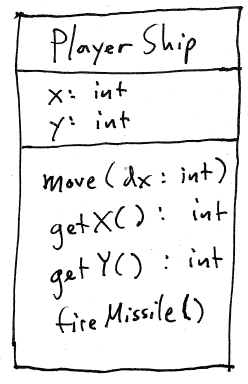 Player Ship
x: int
y: int
move(dx: int)
getX(): int
getY() : int
fireMissile()